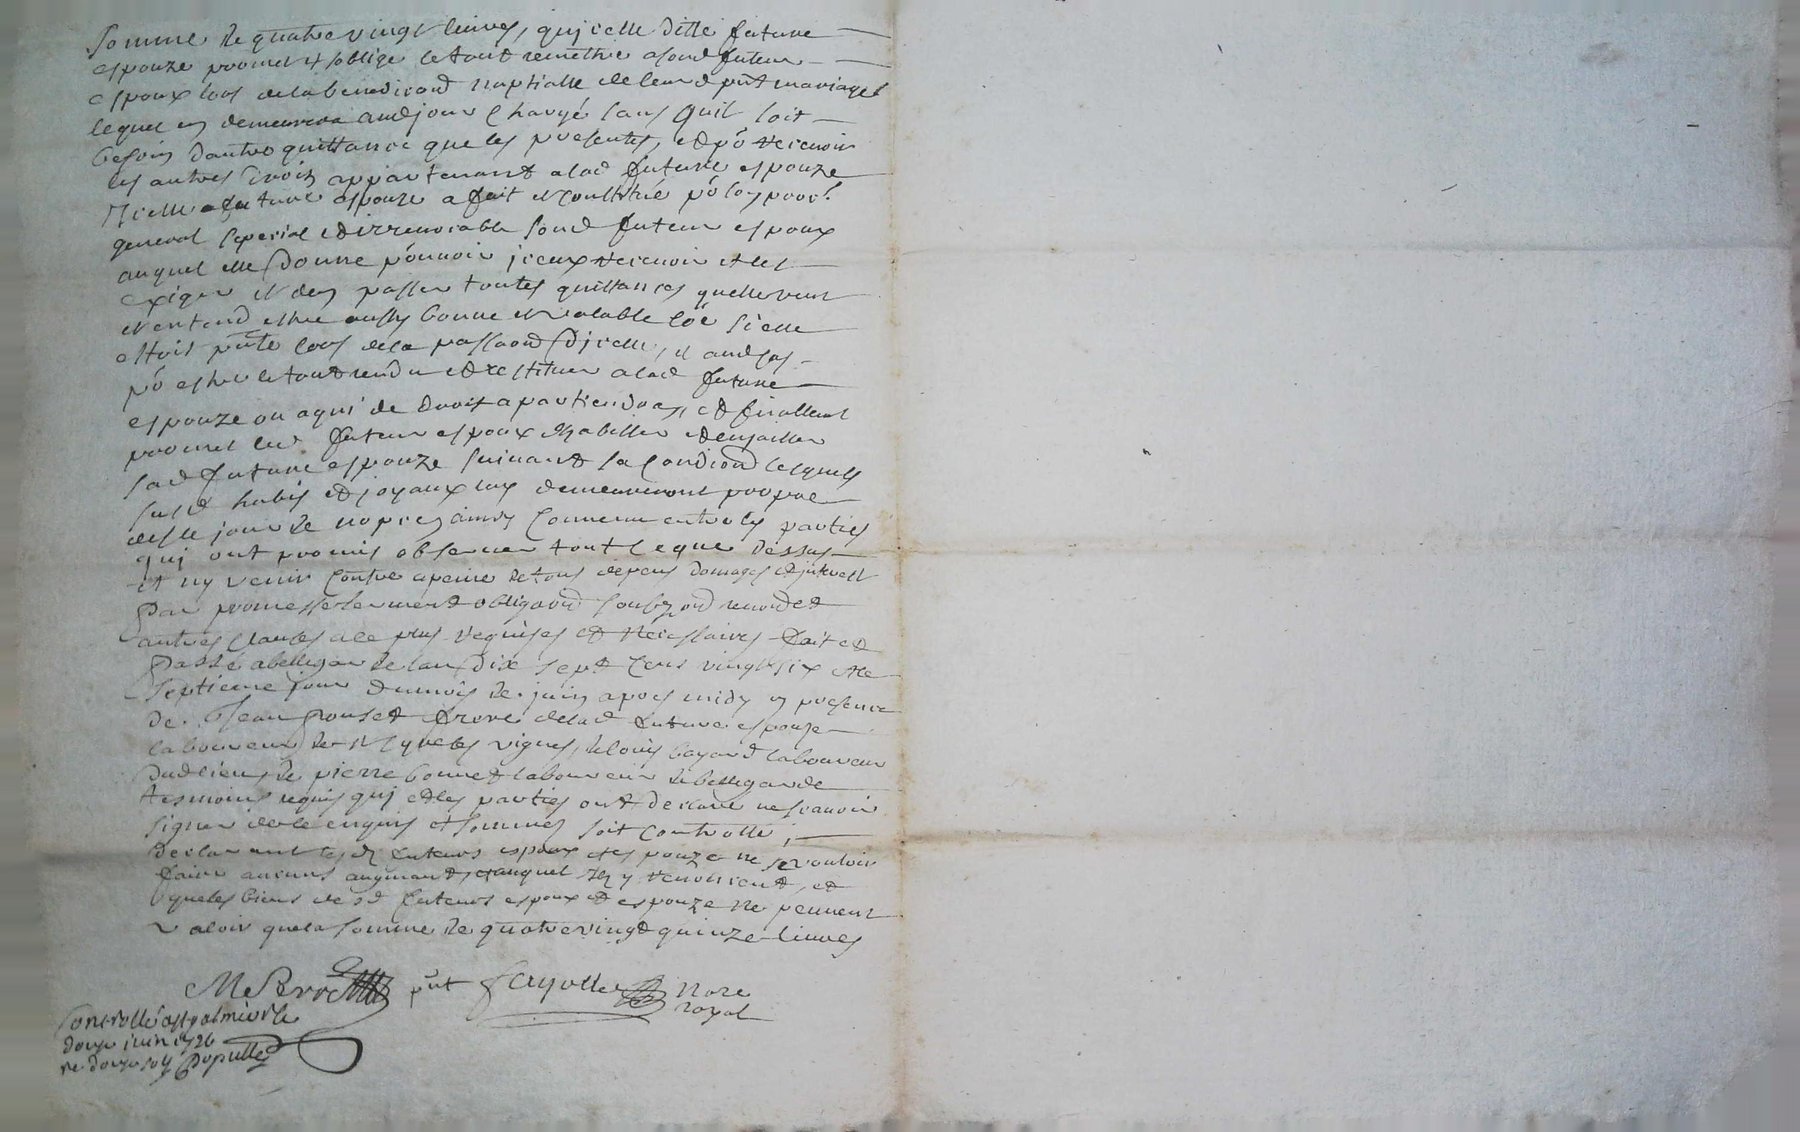 somme de quatre vingt livres, qu'icelle ditte future
espouze promet et s'oblige le tout remettre asond futeur
espoux lors de la benediond nuptialle de leurd pnt mariage
lequel en demeurera aud jour chargé sans quil soit
besoin dautre quittance que les presentes, et põ recevoir
les autres droits appartenant a lad future espouze
Icelle future espouze a fait et constitué põ son procr
general special et irrevocable sond futeur espoux
auquel elle donne põuvoir iceux recevoir et les
exiger et den passer toutes quittances quelle veut
et entend estre aussy bonne et valable coe si elle
estoit pnte lors de la passaond dicelle, et aud cas
põ estre le tout rendu et restitue a lad future
espouze ou a qui de droit apartiendra, et finallemt
promet led futeur espoux habiller et enjoailler
sad future espouze suivant sa condiond lesquels
susd habis et joyaux luy demeureront propre
des le jour de nopces ainsy convenu entre les parties
qui ont promis observer tout ce que dessus
et ny venir contre a peine de tous depens domages et interest
par promesse serment obligaond soubzond renond et
autres clauses a ce plus requises et necessaires fait et
passé a bellegarde lan dix sept cens vingt six et le
septieme jour du mois de juin apres midy en presence
de Jean frere de lad future espouze
laboureur de les vignes, de louis bayard laboureur
dud lieu, de pierre bonnet laboureur de bellegarde
tesmoins requis qui et les parties ont declaré ne scavoir
signer de ce enquis et sommes soit controllé,
declarant lesd futeurs espoux et espouze ne se vouloir
faire aucuns augmant, auquel Ilz y renoncent, et
que les biens desd futeurs espoux et espouze ne peuvent
valoir que la somme de quatre vingt quinze livres
pnt fayolle Nore
royal
Controllé a st galmier le
douze juin 1726
re. douze sols